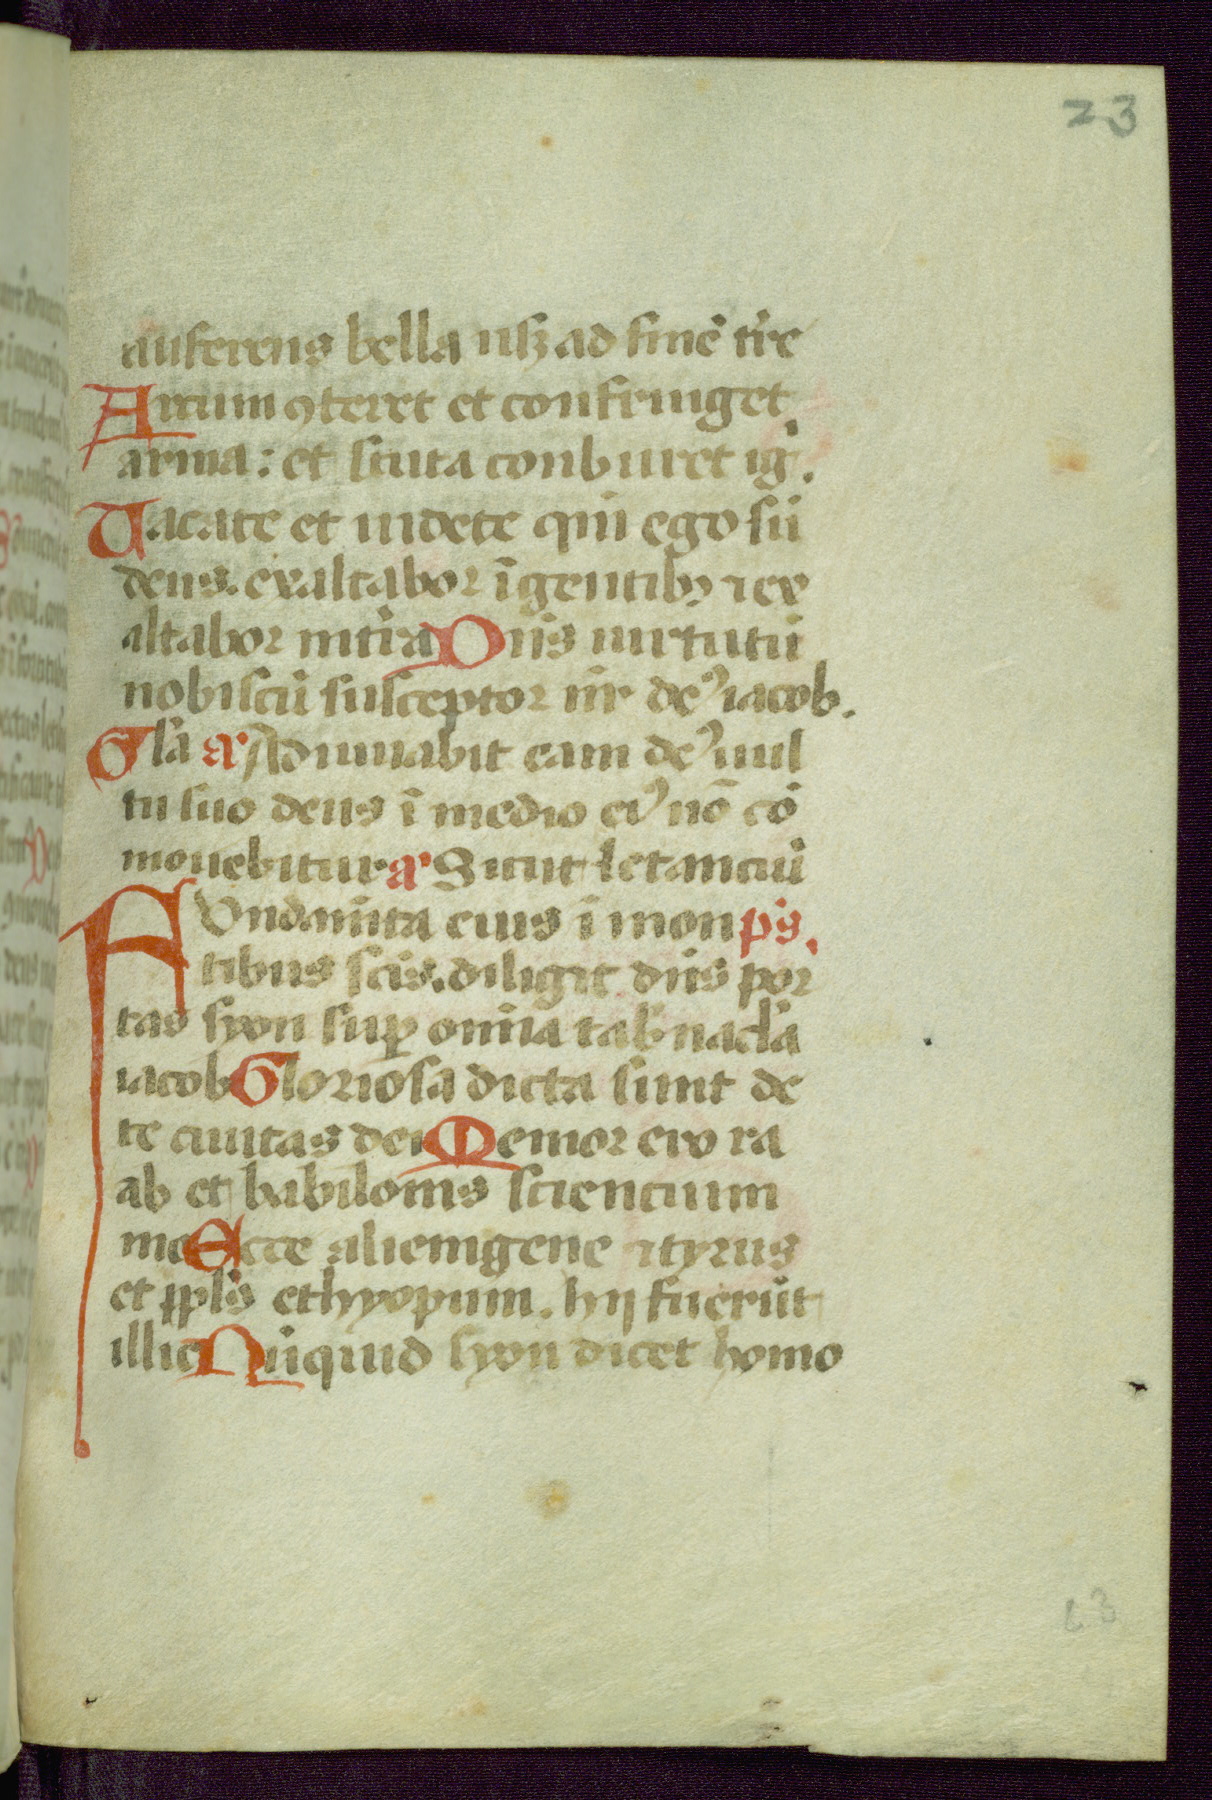 23
auferens bella usqꝫ ad finē tr̄re
Arcum ꝯteret et confringet
arma: et scuta conburet ig̅.
Uacate et uidete qm̄ ego sū
deus. exaltabor ī gentibꝰ ⁊ ex
altabor in tr̄ra Dn̄s uirtutū
nobiscū susceptor nr̄ deꝰ iacob.
Gl̄a añ Adiuuabit eam deꝰ uul
tu suo deus ī medio eiꝰ nō cō
mouebitur añ Sicut letanciū
FUndam̄ta eius ī mon ps̄.
tibus sc̄is. diligit dn̄s por
tas syon suꝑ om̄ia tab̄nacl̄a
iacob Gloriosa dicta sunt de
te ciuitas dei Memor ero ra
ab et babilonis sciencium
me Ecce alienigene ⁊ tyrus
et ppl̄s ethyopum. hij fuerūt
illic Nūquid syon dicet homo
23